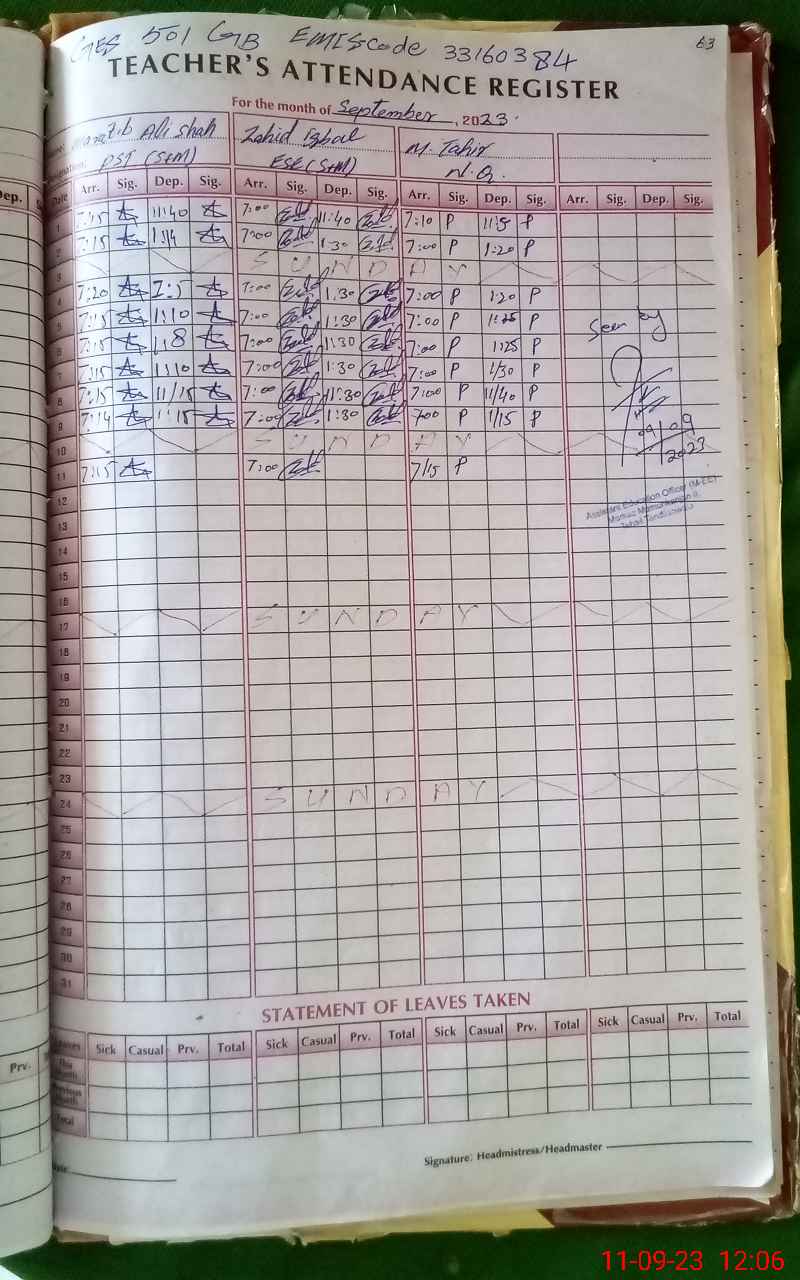 63
GES 501 GB EMIS code 33160384
TEACHER'S ATTENDANCE REGISTER
For the month of September, 2023.
Ali Shah Zahid Iqbal M. Tahir
PST (S+M) ESE (S+M) N.Q.
Date Arr. Sig. Dep. Sig. Arr. Sig. Dep. Sig. Arr. Sig. Dep. Sig. Arr. Sig. Dep. Sig.
1 7:15 11:40 7:00 11:40 7:10 P P
2 7:15 1:14 7:00 1:30 7:00 P 1:20 P
3 SUNDAY
4 7:20 7:00 1:30 7:00 P 1:20 P
5 7:15 1:10 7:00 1:30 7:00 P 1:25 P
6 7:15 7:00 1:30 7:00 P 1:25 P
7 7:15 1:10 7:00 1:30 7:00 P 1/30 P
8 7:15 11/15 7:00 11:30 7:00 P 11/40 P
9 7:14 1:15 7:00 1:30 700 P 1/15 P
10 SUNDAY
11 7:15 7:00 7/15 P
12
13
14
15
16
17 SUNDAY
18
19
20
21
22
23
24 SUNDAY
25
26
27
28
29
30
31
Seen by
09/09
2023
Assistant Education Officer (M-EE)
STATEMENT OF LEAVES TAKEN
Sick Casual Prv. Total Sick Casual Prv. Total Sick Casual Prv. Total Sick Casual Prv. Total
This Month
Previous Month
Total
Signature: Headmistress/Headmaster
Dep.
Prv.
11-09-23 12:06